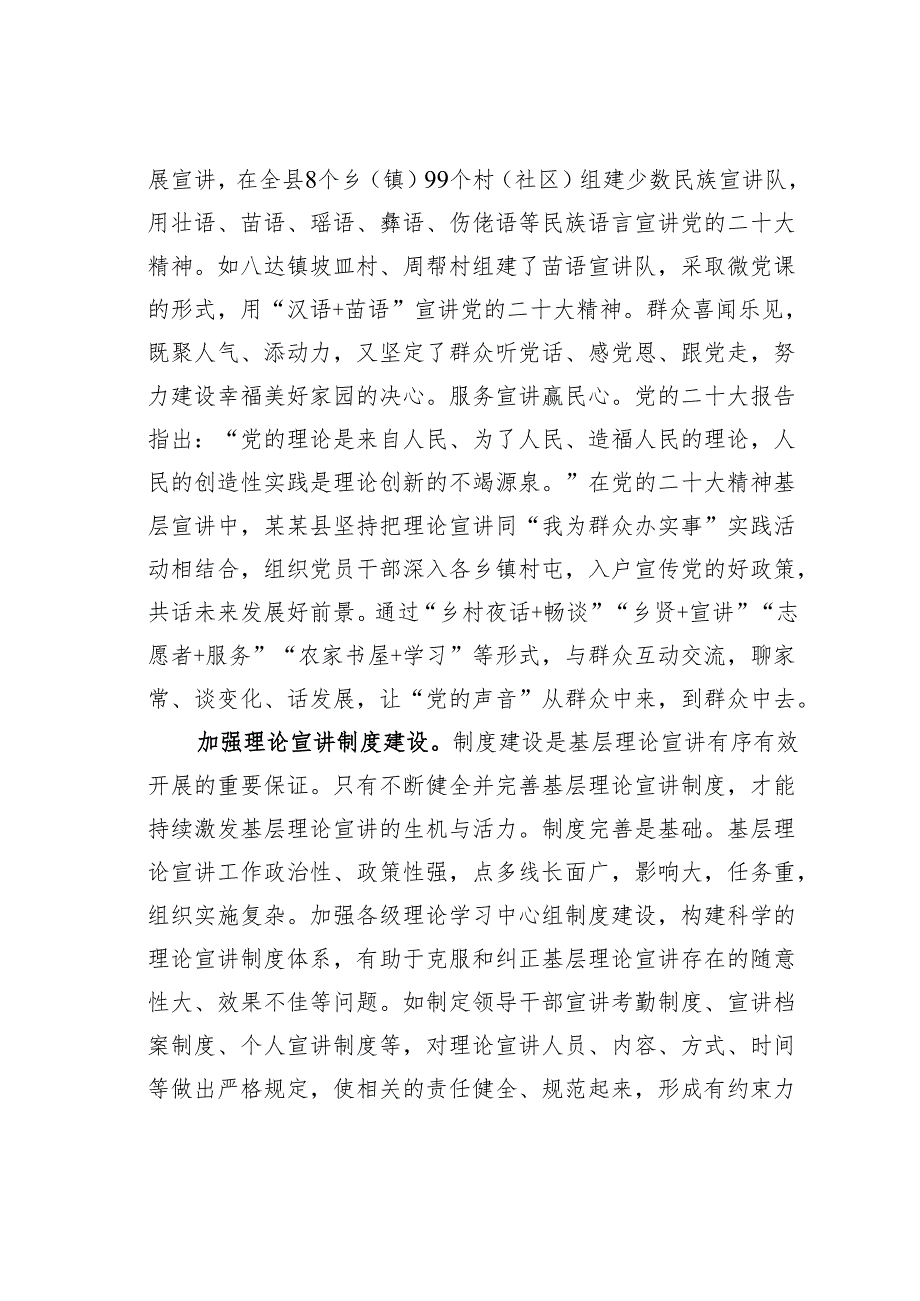 展宣讲，在全县8个乡（镇）99个村（社区）组建少数民族宣讲队，
用壮语、苗语、瑶语、彝语、伤佬语等民族语言宣讲党的二十大
精神。如八达镇坡皿村、周帮村组建了苗语宣讲队，采取微党课
的形式，用“汉语+苗语”宣讲党的二十大精神。群众喜闻乐见，
既聚人气、添动力，又坚定了群众听党话、感党恩、跟党走，努
力建设幸福美好家园的决心。服务宣讲赢民心。党的二十大报告
指出：“党的理论是来自人民、为了人民、造福人民的理论，人
民的创造性实践是理论创新的不竭源泉。”在党的二十大精神基
层宣讲中，某某县坚持把理论宣讲同“我为群众办实事”实践活
动相结合，组织党员干部深入各乡镇村屯，入户宣传党的好政策，
共话未来发展好前景。通过“乡村夜话+畅谈”“乡贤+宣讲”“志
愿者+服务”“农家书屋+学习”等形式，与群众互动交流，聊家
常、谈变化、话发展，让“党的声音”从群众中来，到群众中去。
加强理论宣讲制度建设。制度建设是基层理论宣讲有序有效
开展的重要保证。只有不断健全并完善基层理论宣讲制度，才能
持续激发基层理论宣讲的生机与活力。制度完善是基础。基层理
论宣讲工作政治性、政策性强，点多线长面广，影响大，任务重，
组织实施复杂。加强各级理论学习中心组制度建设，构建科学的
理论宣讲制度体系，有助于克服和纠正基层理论宣讲存在的随意
性大、效果不佳等问题。如制定领导干部宣讲考勤制度、宣讲档
案制度、个人宣讲制度等，对理论宣讲人员、内容、方式、时间
等做出严格规定，使相关的责任健全、规范起来，形成有约束力